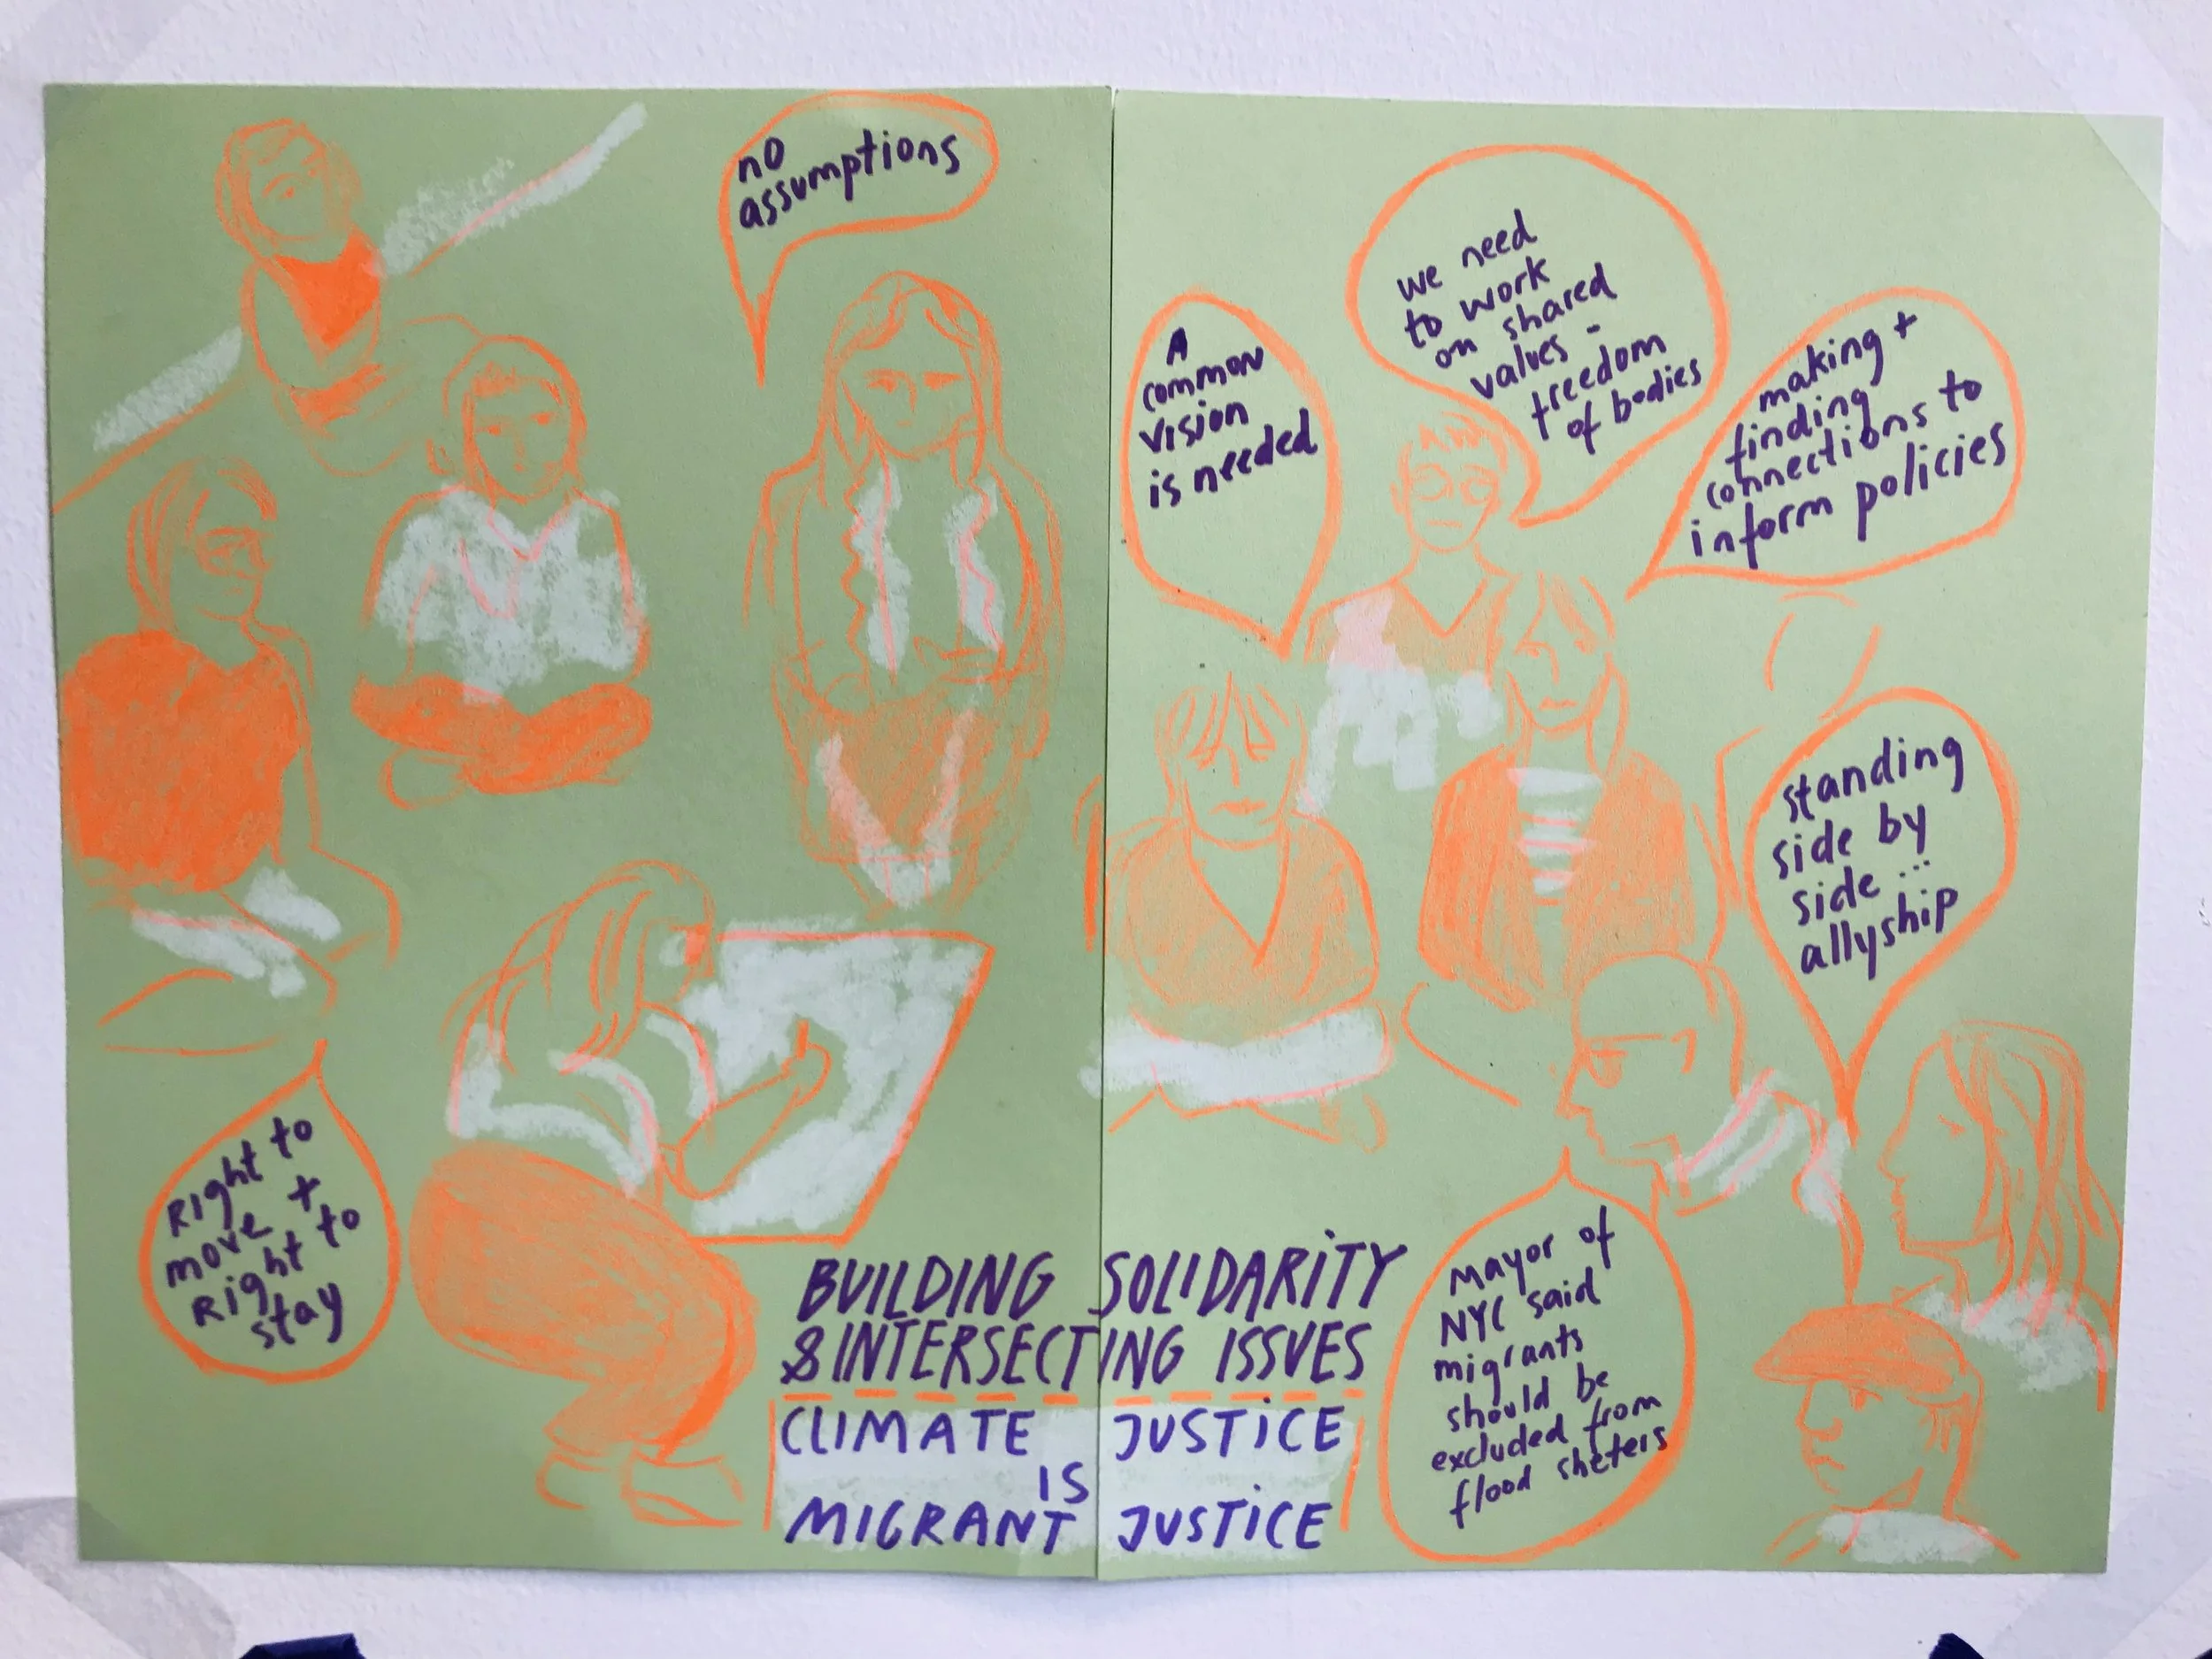 no
assumptions
A
common
vision
is needed
we need
to work
on shared
values -
freedom
of bodies
making +
finding
connections to
inform policies
standing
side by
side ...
allyship
Right to
move +
Right to
stay
BUILDING SOLIDARITY
& INTERSECTING ISSUES
CLIMATE JUSTICE
IS
MIGRANT JUSTICE
Mayor of
NYC said
migrants
should be
excluded from
flood shelters